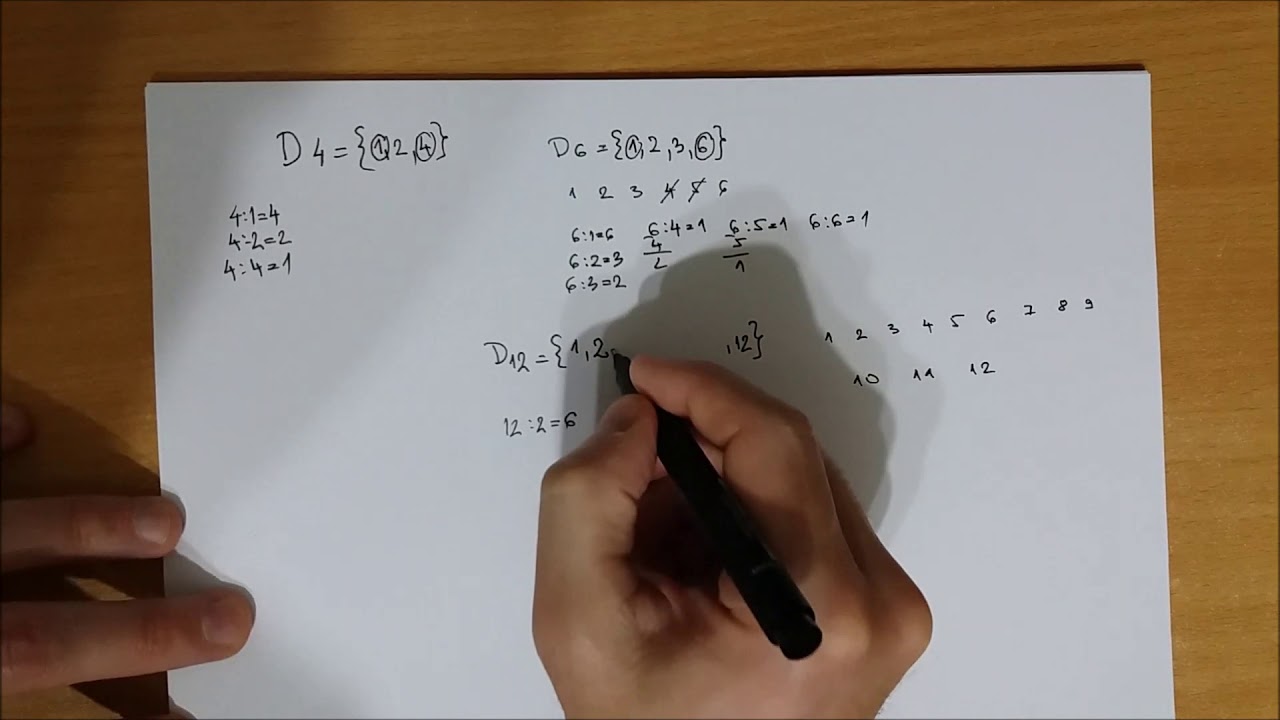 D 4 = {1, 2, 4}
4:1=4
4:2=2
4:4=1
D6 = {1, 2, 3, 6}
1 2 3 4 5 6
6:1=6
6:2=3
6:3=2
6:4=1
4
2
6:5=1
5
1
6:6=1
D12 = {1, 2, ,12}
12:2=6
1 2 3 4 5 6 7 8 9
10 11 12